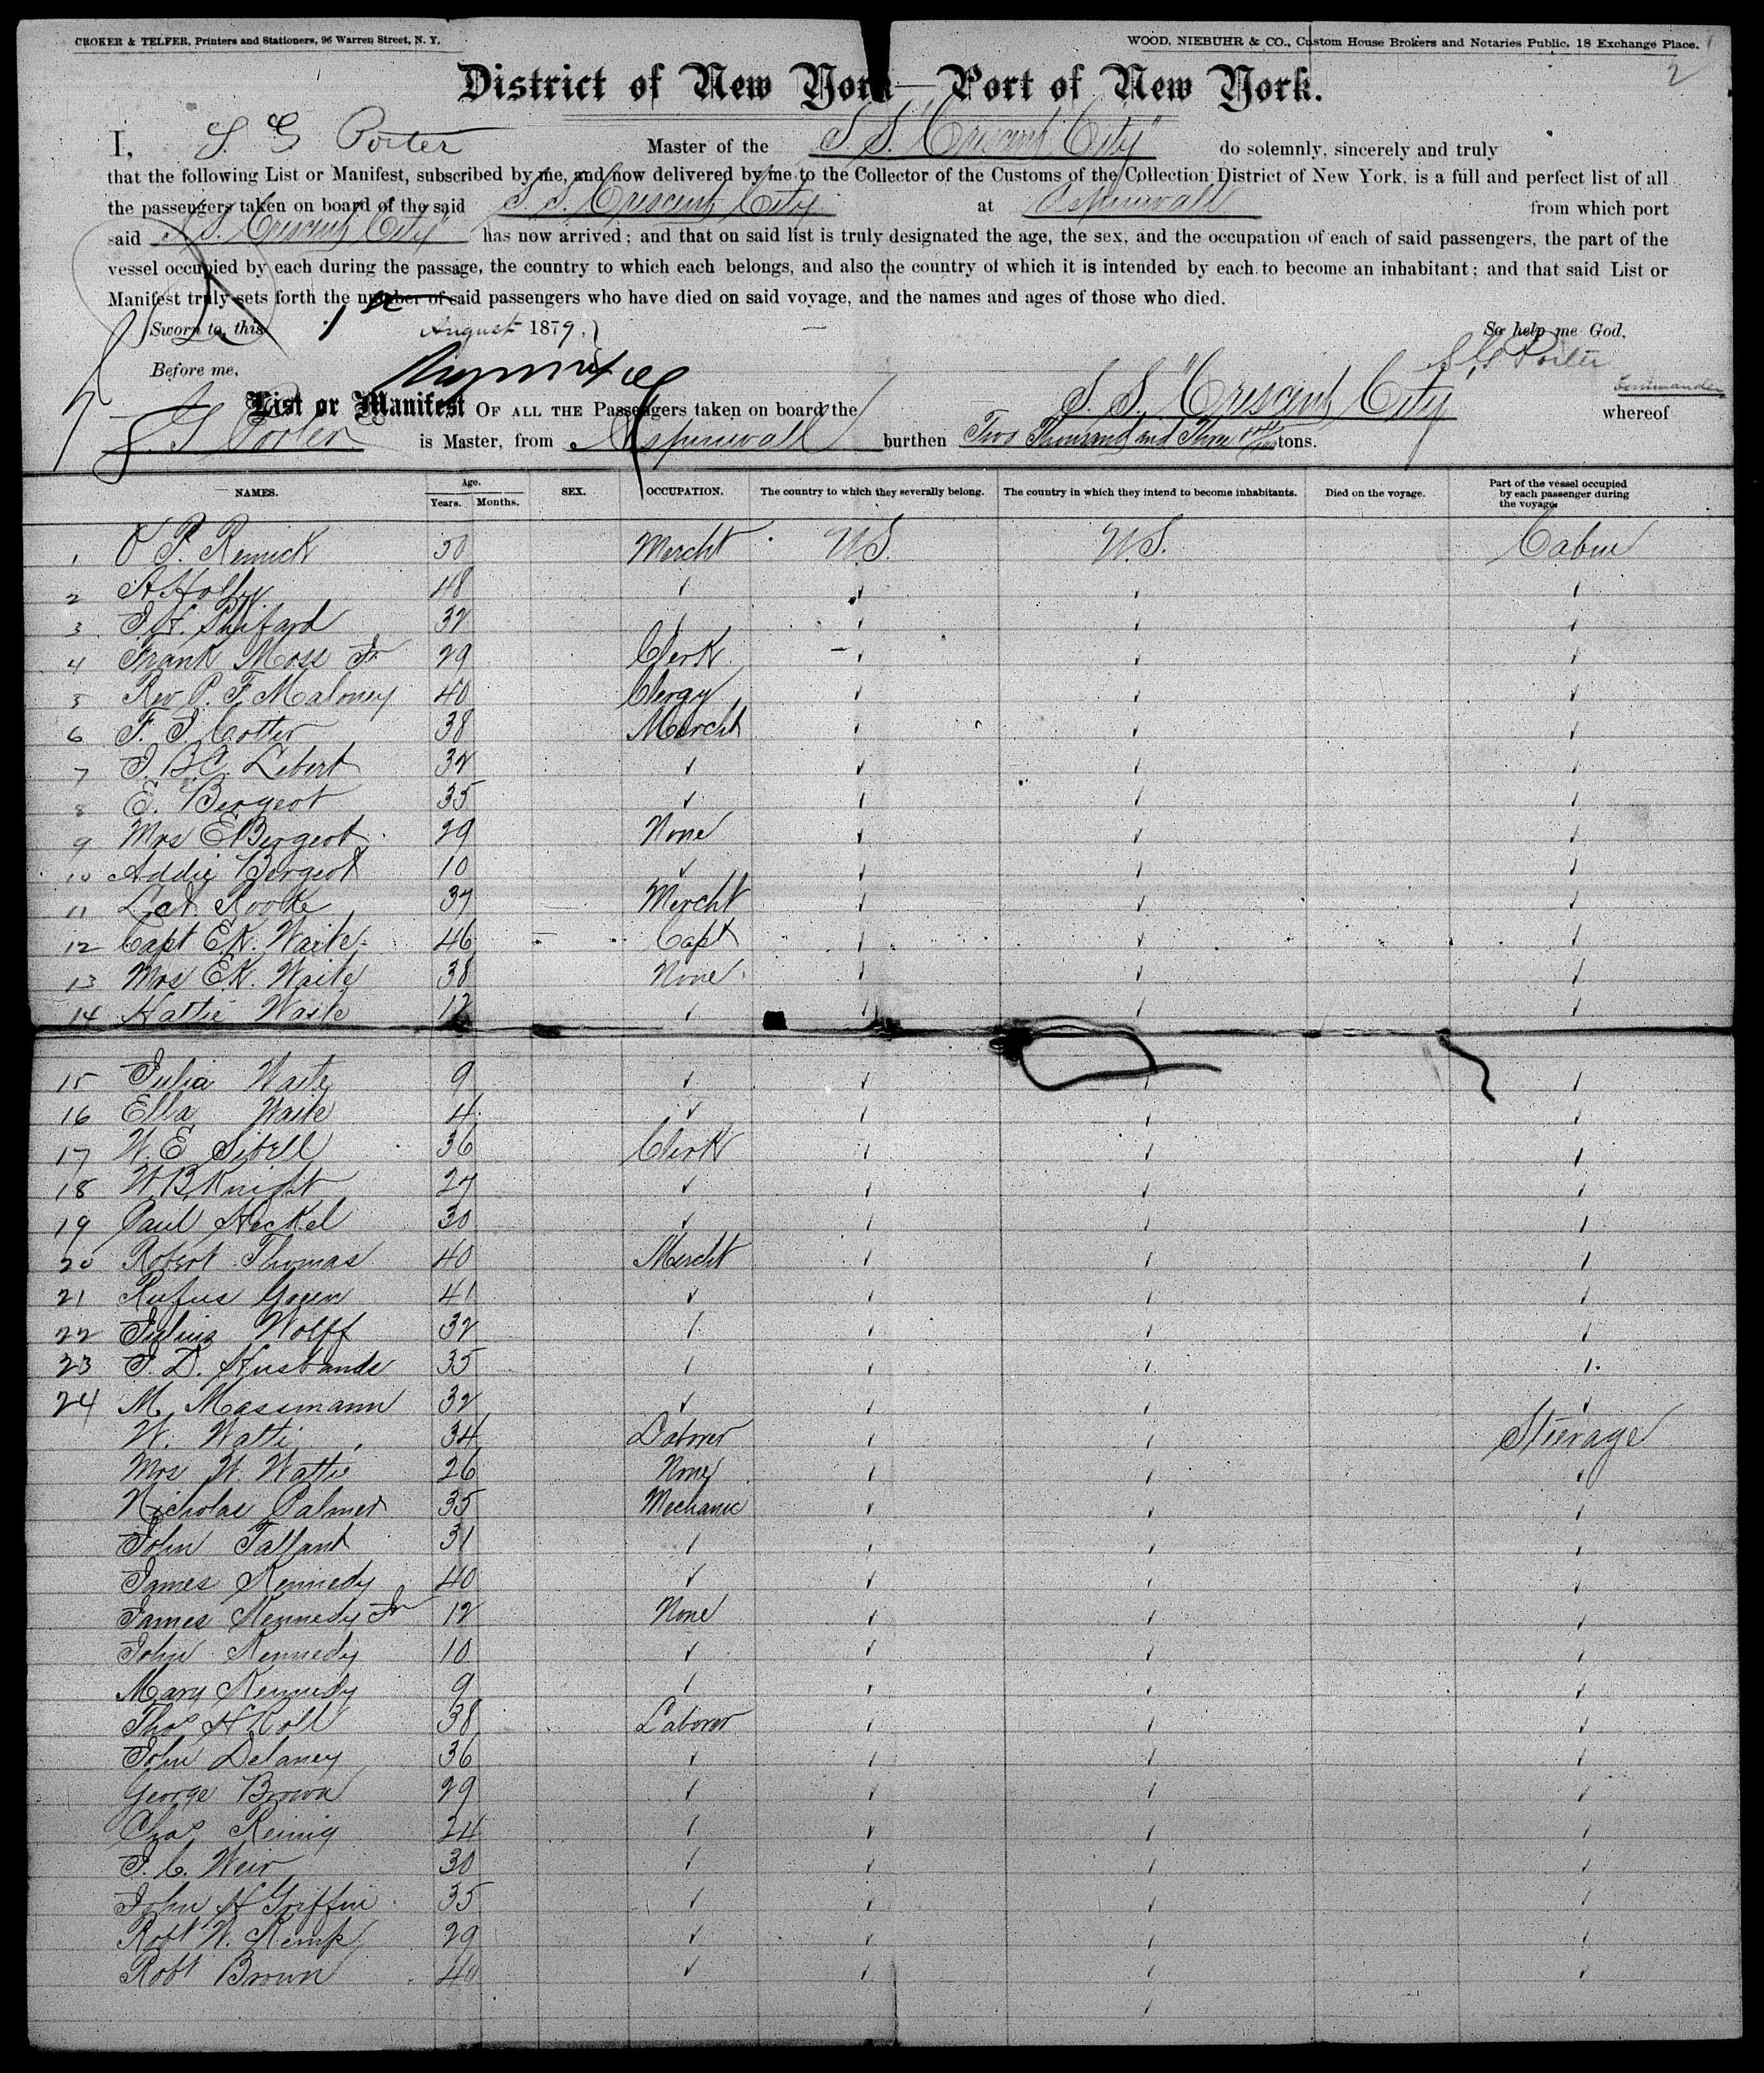 CROKER & TELFER, Printers and Stationers, 96 Warren Street, N. Y.
WOOD, NIEBUHR & CO., Custom House Brokers and Notaries Public, 18 Exchange Place.
2
District of New York—Port of New York.
I, S. G Porter Master of the S. S. "Crescent City" do solemnly, sincerely and truly
that the following List or Manifest, subscribed by me, and now delivered by me to the Collector of the Customs of the Collection District of New York, is a full and perfect list of all
the passengers taken on board of the said S S. Crescent City at Aspinwall from which port
said S S. Crescent City" has now arrived; and that on said list is truly designated the age, the sex, and the occupation of each of said passengers, the part of the
vessel occupied by each during the passage, the country to which each belongs, and also the country of which it is intended by each to become an inhabitant; and that said List or
Manifest truly sets forth the number of said passengers who have died on said voyage, and the names and ages of those who died.
Sworn to, this 1st August 1879, So help me God,
S G Porter
Before me, Commander
List or Manifest OF ALL THE Passengers taken on board the S. S. "Crescent City" whereof
S G Porter is Master, from Aspinwall burthen Two Thousand and Three tons.
NAMES. Age. Years. Months. SEX. OCCUPATION. The country to which they severally belong. The country in which they intend to become inhabitants. Died on the voyage. Part of the vessel occupied by each passenger during the voyage
1 P. Remick 50 Mercht U.S. U.S. Cabin
2 A Holby 48
3 Shifard 32
4 Frank Moss Jr 29 Clerk
5 Rev P. F Maloney 40 Clergy
6 F. J Cotter 38 Mercht
7 J. B. C. Lebert 32
8 E. Bergeot 35
9 Mrs E Bergeot 29 None
10 Addie Bergeot 10
11 Rooke 37 Mercht
12 Capt E K. Waite 46 Capt
13 Mrs E K. Waite 38 None
14 Hattie Waite 12
15 Julia Waite 9
16 Ella Waite 4
17 W. E Sibell 36 Clerk
18 W B Knight 27
19 Paul Heckel 30
20 Robert Thomas 40 Mercht
21 Rufus Green 41
22 Julius Wolff 32
23 J. D. Husbands 35
24 M. Massmann 32
W. Watti 34 Laborer Steerage
Mrs W. Wattie 26 None
Nicholas Palmer 35 Mechanic
John Tallant 31
James Kennedy 40
James Kennedy Jr 12 None
John Kennedy 10
Mary Kennedy 9
Thos H Roll 38 Laborer
John Delaney 36
George Brown 29
Chas Reinig 24
J. C. Weir 30
John H Griffin 35
Robt W. Kemp 29
Robt Brown 40